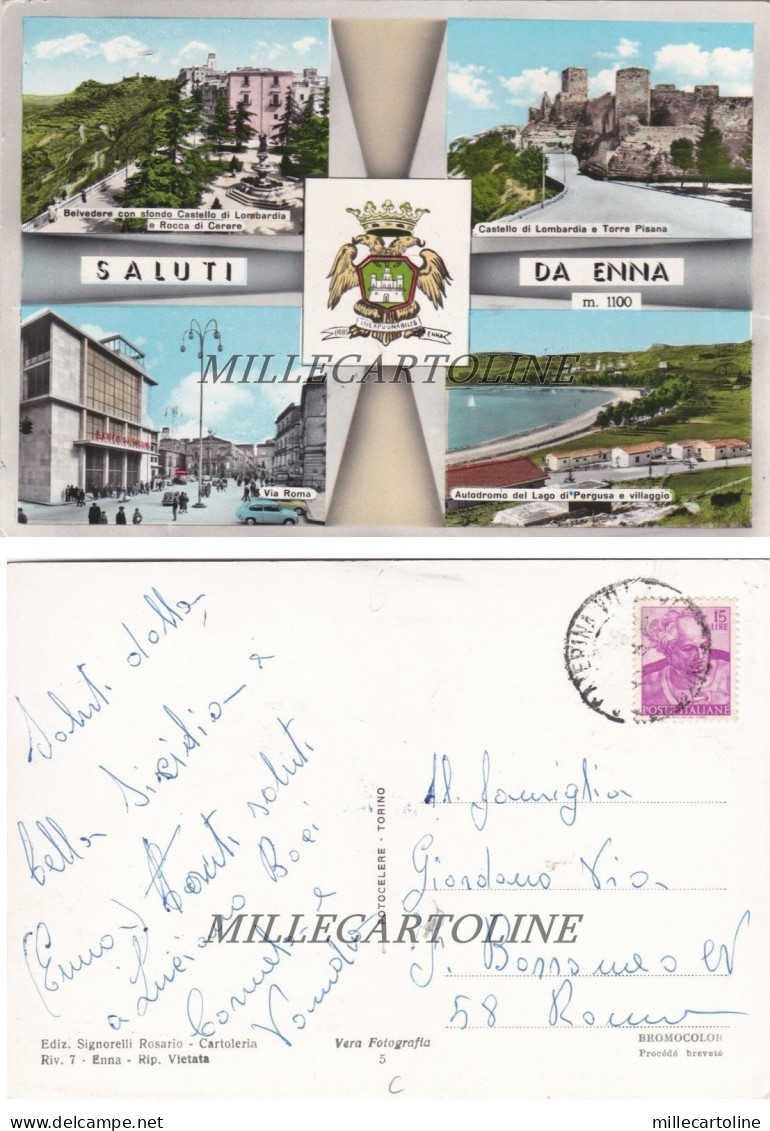 Belvedere con sfondo Castello di Lombardia
e Rocca di Cerere
Castello di Lombardia e Torre Pisana
SALUTI DA ENNA
m. 1100
INEXPUGNABILIS
ENNA
MILLECARTOLINE
Via Roma
Autodromo del Lago di Pergusa e villaggio
15
LIRE
POSTE ITALIANE
Saluti dalla
bella Sicilia e
(Enna) Tanti saluti
a Luciano Baci
FOTOCELERE - TORINO
Famiglia
Giordano Via
58 Roma
MILLECARTOLINE
Ediz. Signorelli Rosario - Cartoleria
Riv. 7 - Enna - Rip. Vietata
Vera Fotografia
5
BROMOCOLOR
Procédé breveté
C
delcampe.net
millecartoline